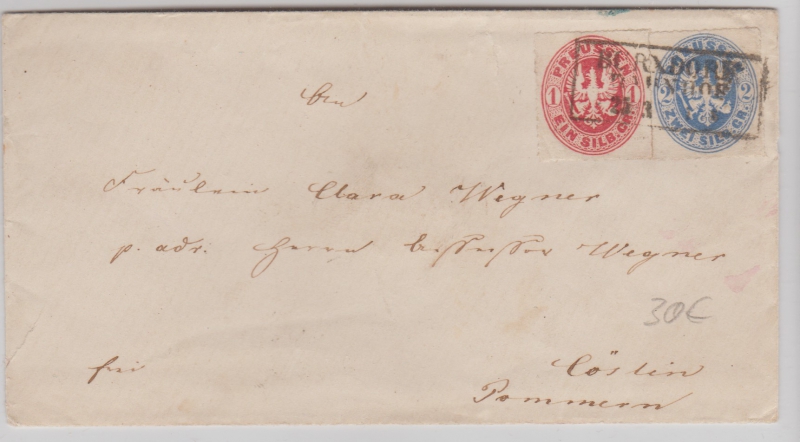 PREUSSEN
1 1
EIN SILB. GR.
PREUSSEN
2 2
ZWEI SILB. GR.
BAHNHOF
An
Fräulein Clara Wegner
p. adr. Herrn Assessor Wegner
30€
frei
Cöslin
Pommern